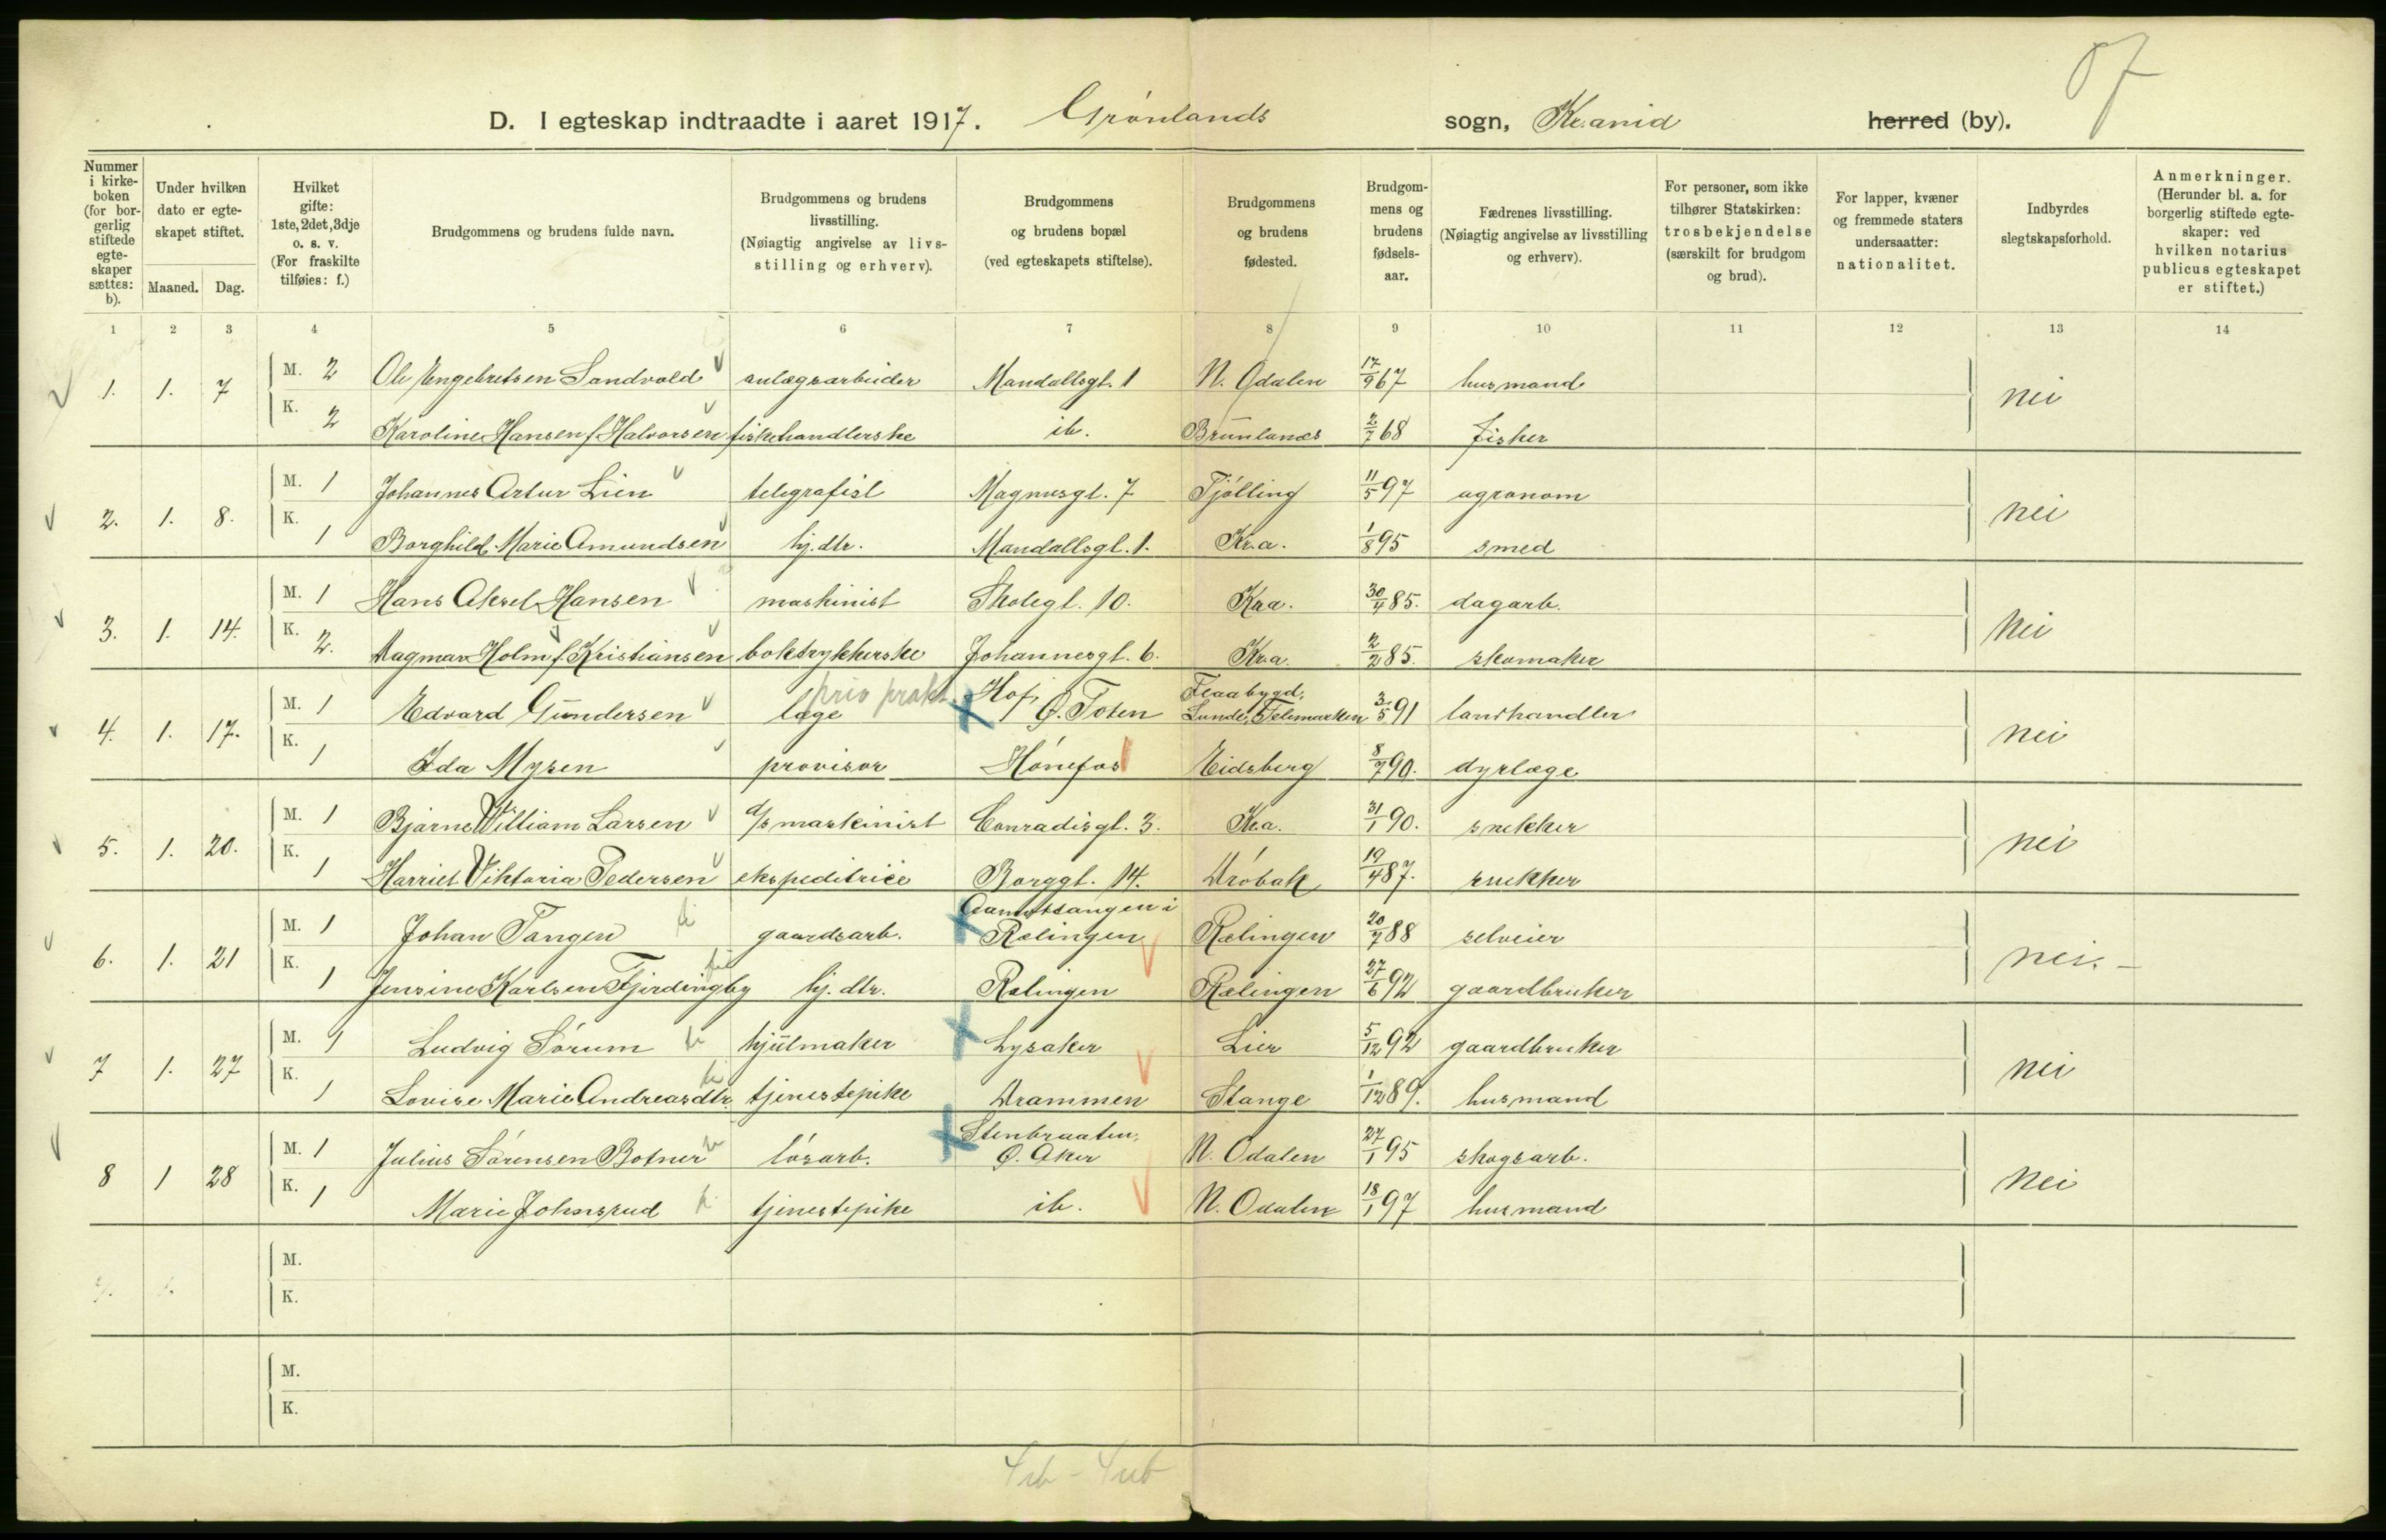 D. I egteskap indtraadte i aaret 1917. Grønlands sogn, Kr.ania herred (by).
07
Nummer i kirkeboken (for borgerlig stiftede egteskaper sættes: b).
Under hvilken dato er egteskapet stiftet.
Maaned. Dag.
Hvilket gifte: 1ste, 2det, 3dje o. s. v. (For fraskilte tilføies: f.)
Brudgommens og brudens fulde navn.
Brudgommens og brudens livsstilling. (Nøiagtig angivelse av livsstilling og erhverv).
Brudgommens og brudens bopæl (ved egteskapets stiftelse).
Brudgommens og brudens fødested.
Brudgommens og brudens fødselsaar.
Fædrenes livsstilling. (Nøiagtig angivelse av livsstilling og erhverv).
For personer, som ikke tilhører Statskirken: trosbekjendelse (særskilt for brudgom og brud).
For lapper, kvæner og fremmede staters undersaatter: nationalitet.
Indbyrdes slegtskapsforhold.
Anmerkninger. (Herunder bl. a. for borgerlig stiftede egteskaper: ved hvilken notarius publicus egteskapet er stiftet.)
1 2 3 4 5 6 7 8 9 10 11 12 13 14
1. 1. 7 M. 2 Ole Engebretsen Sandvold anlægsarbeider Mandallsgt. 1 N. Odalen 17/9 67 husmand nei
K. 2 Karoline Hansen f. Halvorsen fiskehandlerske ib. Brunlanes 2/7 68 fisker
2. 1. 8. M. 1 Johannes Artur Lien telegrafist Magnusgt. 7 Tjølling 11/5 97 agronom nei
K. 1 Borghild Marie Amundsen hj. dtr. Mandallsgt. 1. Kr.a. 1/8 95 smed
3. 1. 14. M. 1 Hans Aksel Hansen maskinist Skolegt. 10. Kr.a. 30/4 85. dagarb. nei
K. 2. Dagmar Holm f. Kristiansen boktrykkerske Johannesgt. 6. Kr.a. 2/2 85. skomaker
4. 1. 17. M. 1 Edvard Gundersen læge priv prakt. Hof, Ø. Toten Flaabygd, Lunde, Telemarken 3/5 91 landhandler nei
K. 1 Ida Mysen provisor Hønefos Eidsberg 8/7 90. dyrlæge
5. 1. 20. M. 1 Bjarne William Larsen d/s maskinist Conradisgt. 3. Kr.a. 31/1 90. snekker nei
K. 1 Harriet Viktoria Pedersen ekspeditrice Borggt. 14. Drøbak 19/4 87. snekker
6. 1. 21 M. 1 Johan Tangen gaardsarb. Aamotstangen i Rælingen Rælingen 20/7 88 selveier nei.
K. 1 Jensine Karlsen Fjerdingby hj. dtr. Rælingen Rælingen 27/6 92 gaardbruker
7 1. 27 M. 1 Ludvig Sørum hjulmaker Lysaker Lier 5/12 92 gaardbruker nei
K. 1 Lovise Marie Andreasdtr. tjenestepike Drammen Stange 1/12 89. husmand
8 1 28 M. 1 Julius Sørensen Botner løsarb. Stenbraaten, Ø. Aker N. Odalen 27/1 95 skogsarb. nei
K. 1 Marie Johnsrud tjenestepike ib. N. Odalen 18/1 97 husmand
M.
K.
M.
K.